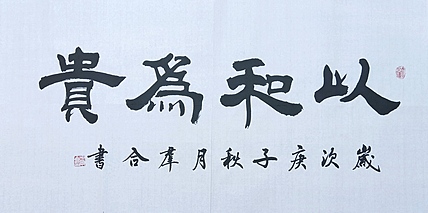 以和為貴
歲次庚子秋月羣合書